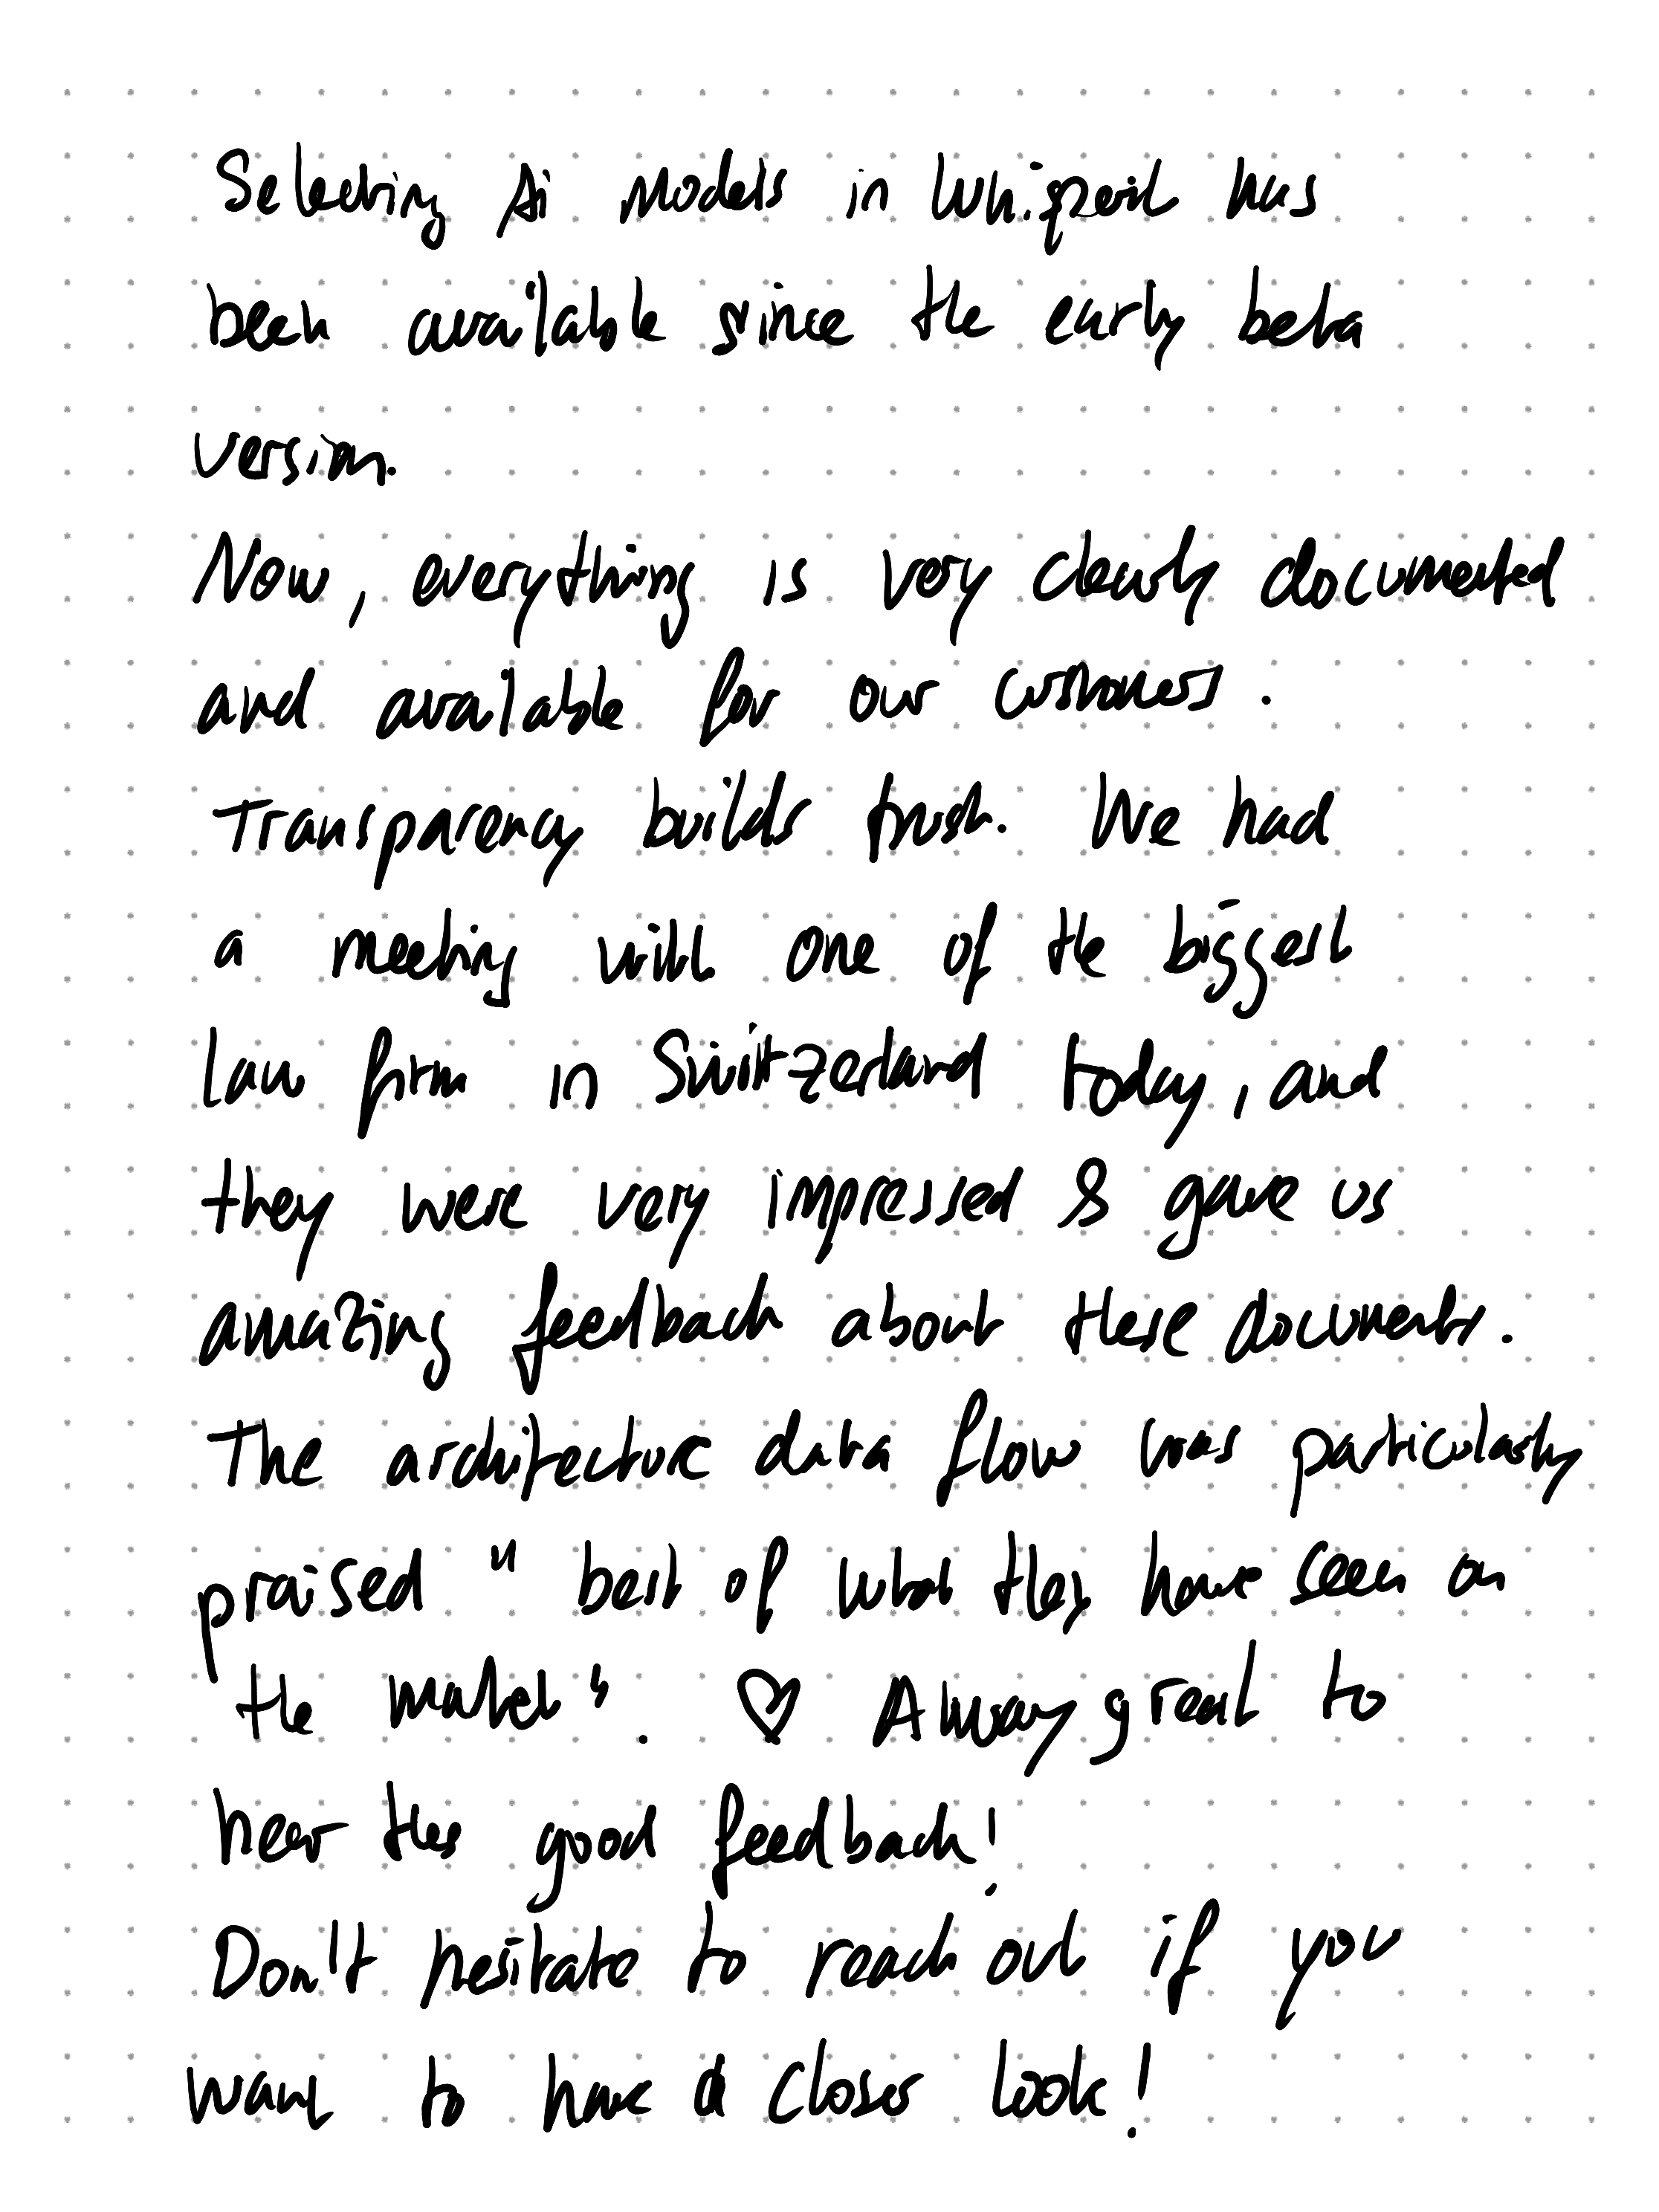 Selecting Ai Models in has
been available since the early beta
version.
Now, everything is very clearly documented
and available for our customers.
Transparency builds trust. We had
a meeting with one of the biggest
law firm in Switzerland today, and
they were very impressed & gave us
amazing feedback about these documents.
The architecture data flow was particularly
praised " best of what they have seen on
the market". ♡ Alway great to
hear the good feedback!
Don't hesitate to reach out if you
want to have a closer look!